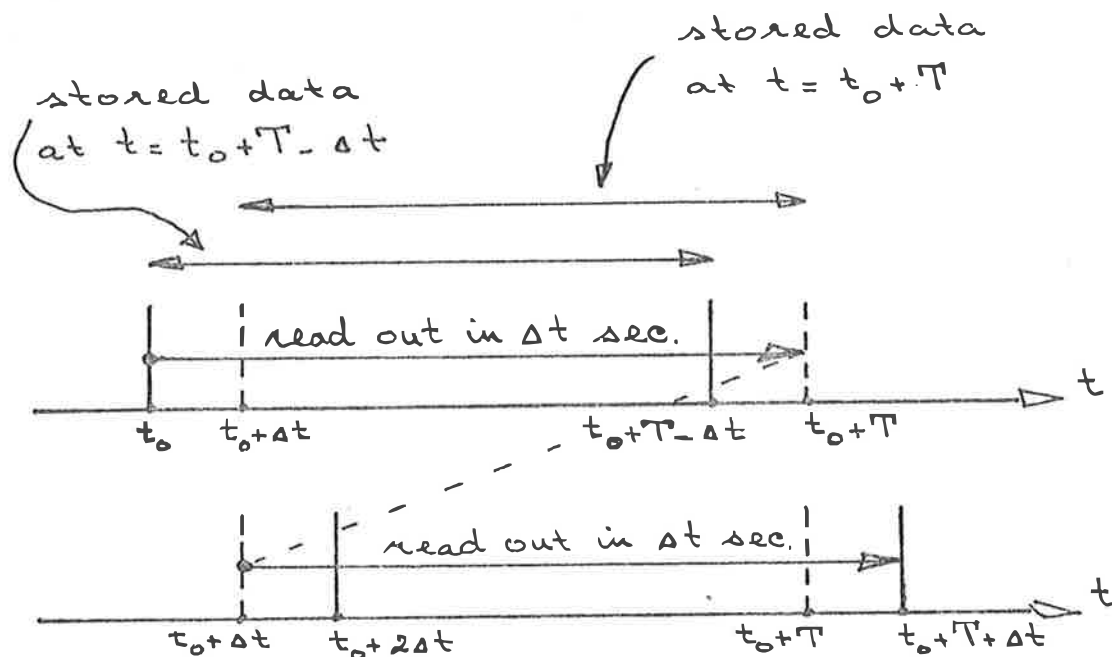 stored data
at t = t₀ + T
stored data
at t = t₀ + T - Δt
read out in Δt sec.
t
t₀
t₀ + Δt
t₀ + T - Δt
t₀ + T
read out in Δt sec.
t
t₀ + Δt
t₀ + 2Δt
t₀ + T
t₀ + T + Δt